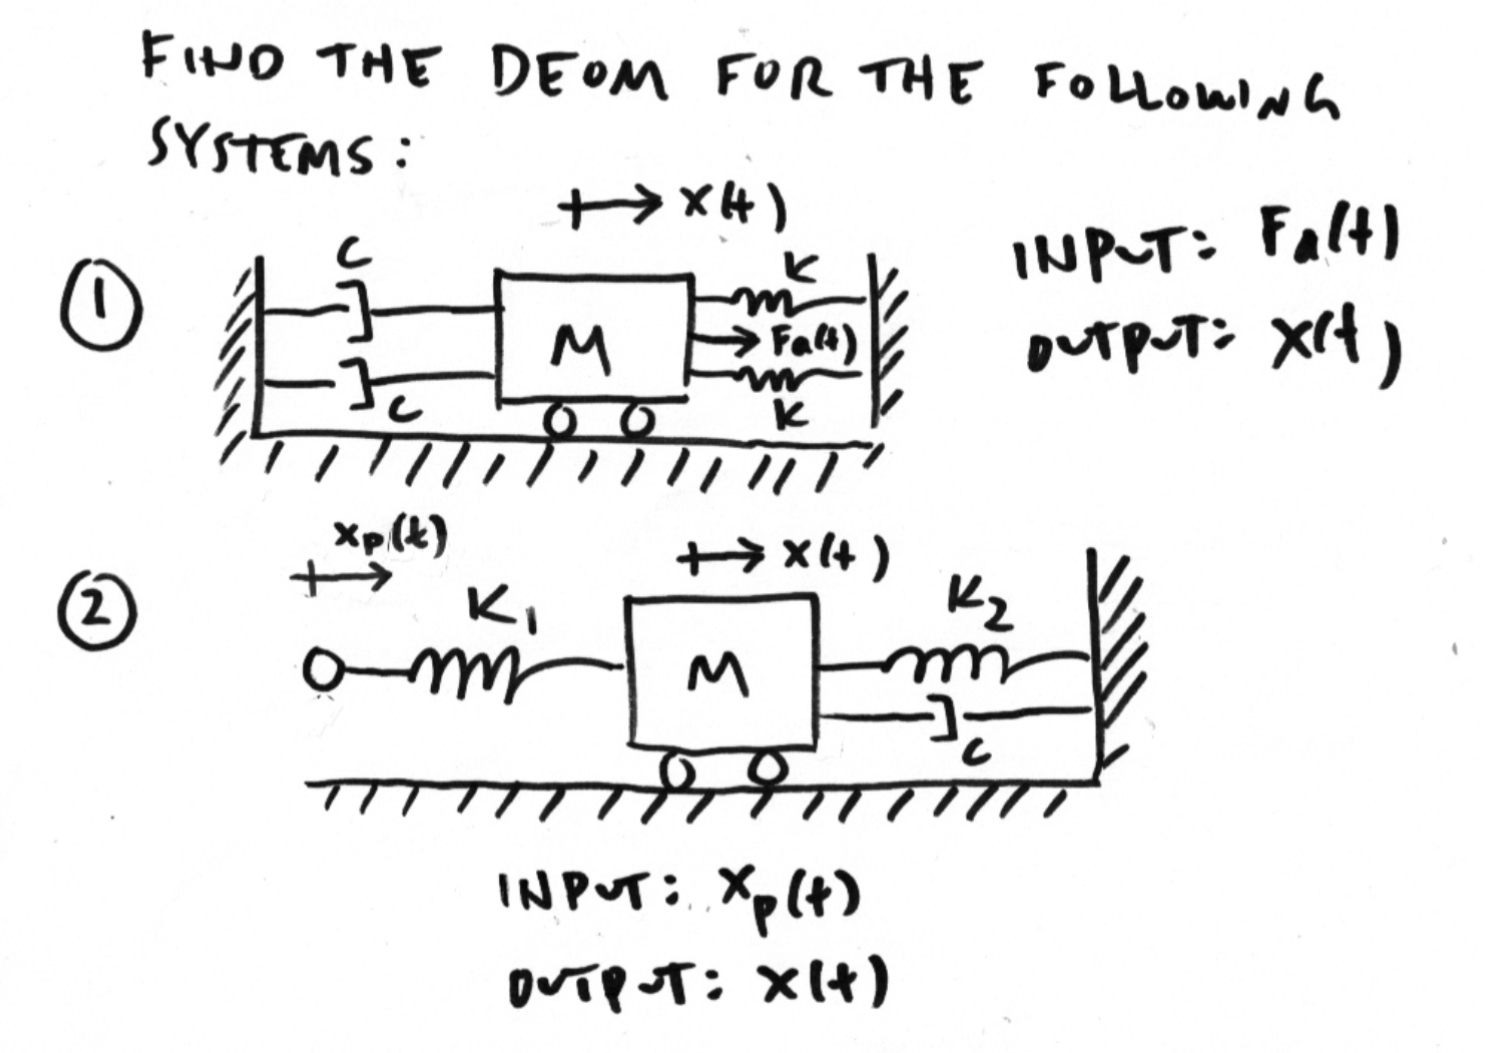 FIND THE DEOM FOR THE FOLLOWING
SYSTEMS:
①
x(t)
C
C
M
K
Fa(t)
K
INPUT: Fa(t)
OUTPUT: x(t)
②
xp(t)
K1
x(t)
M
K2
C
INPUT: xp(t)
OUTPUT: x(t)